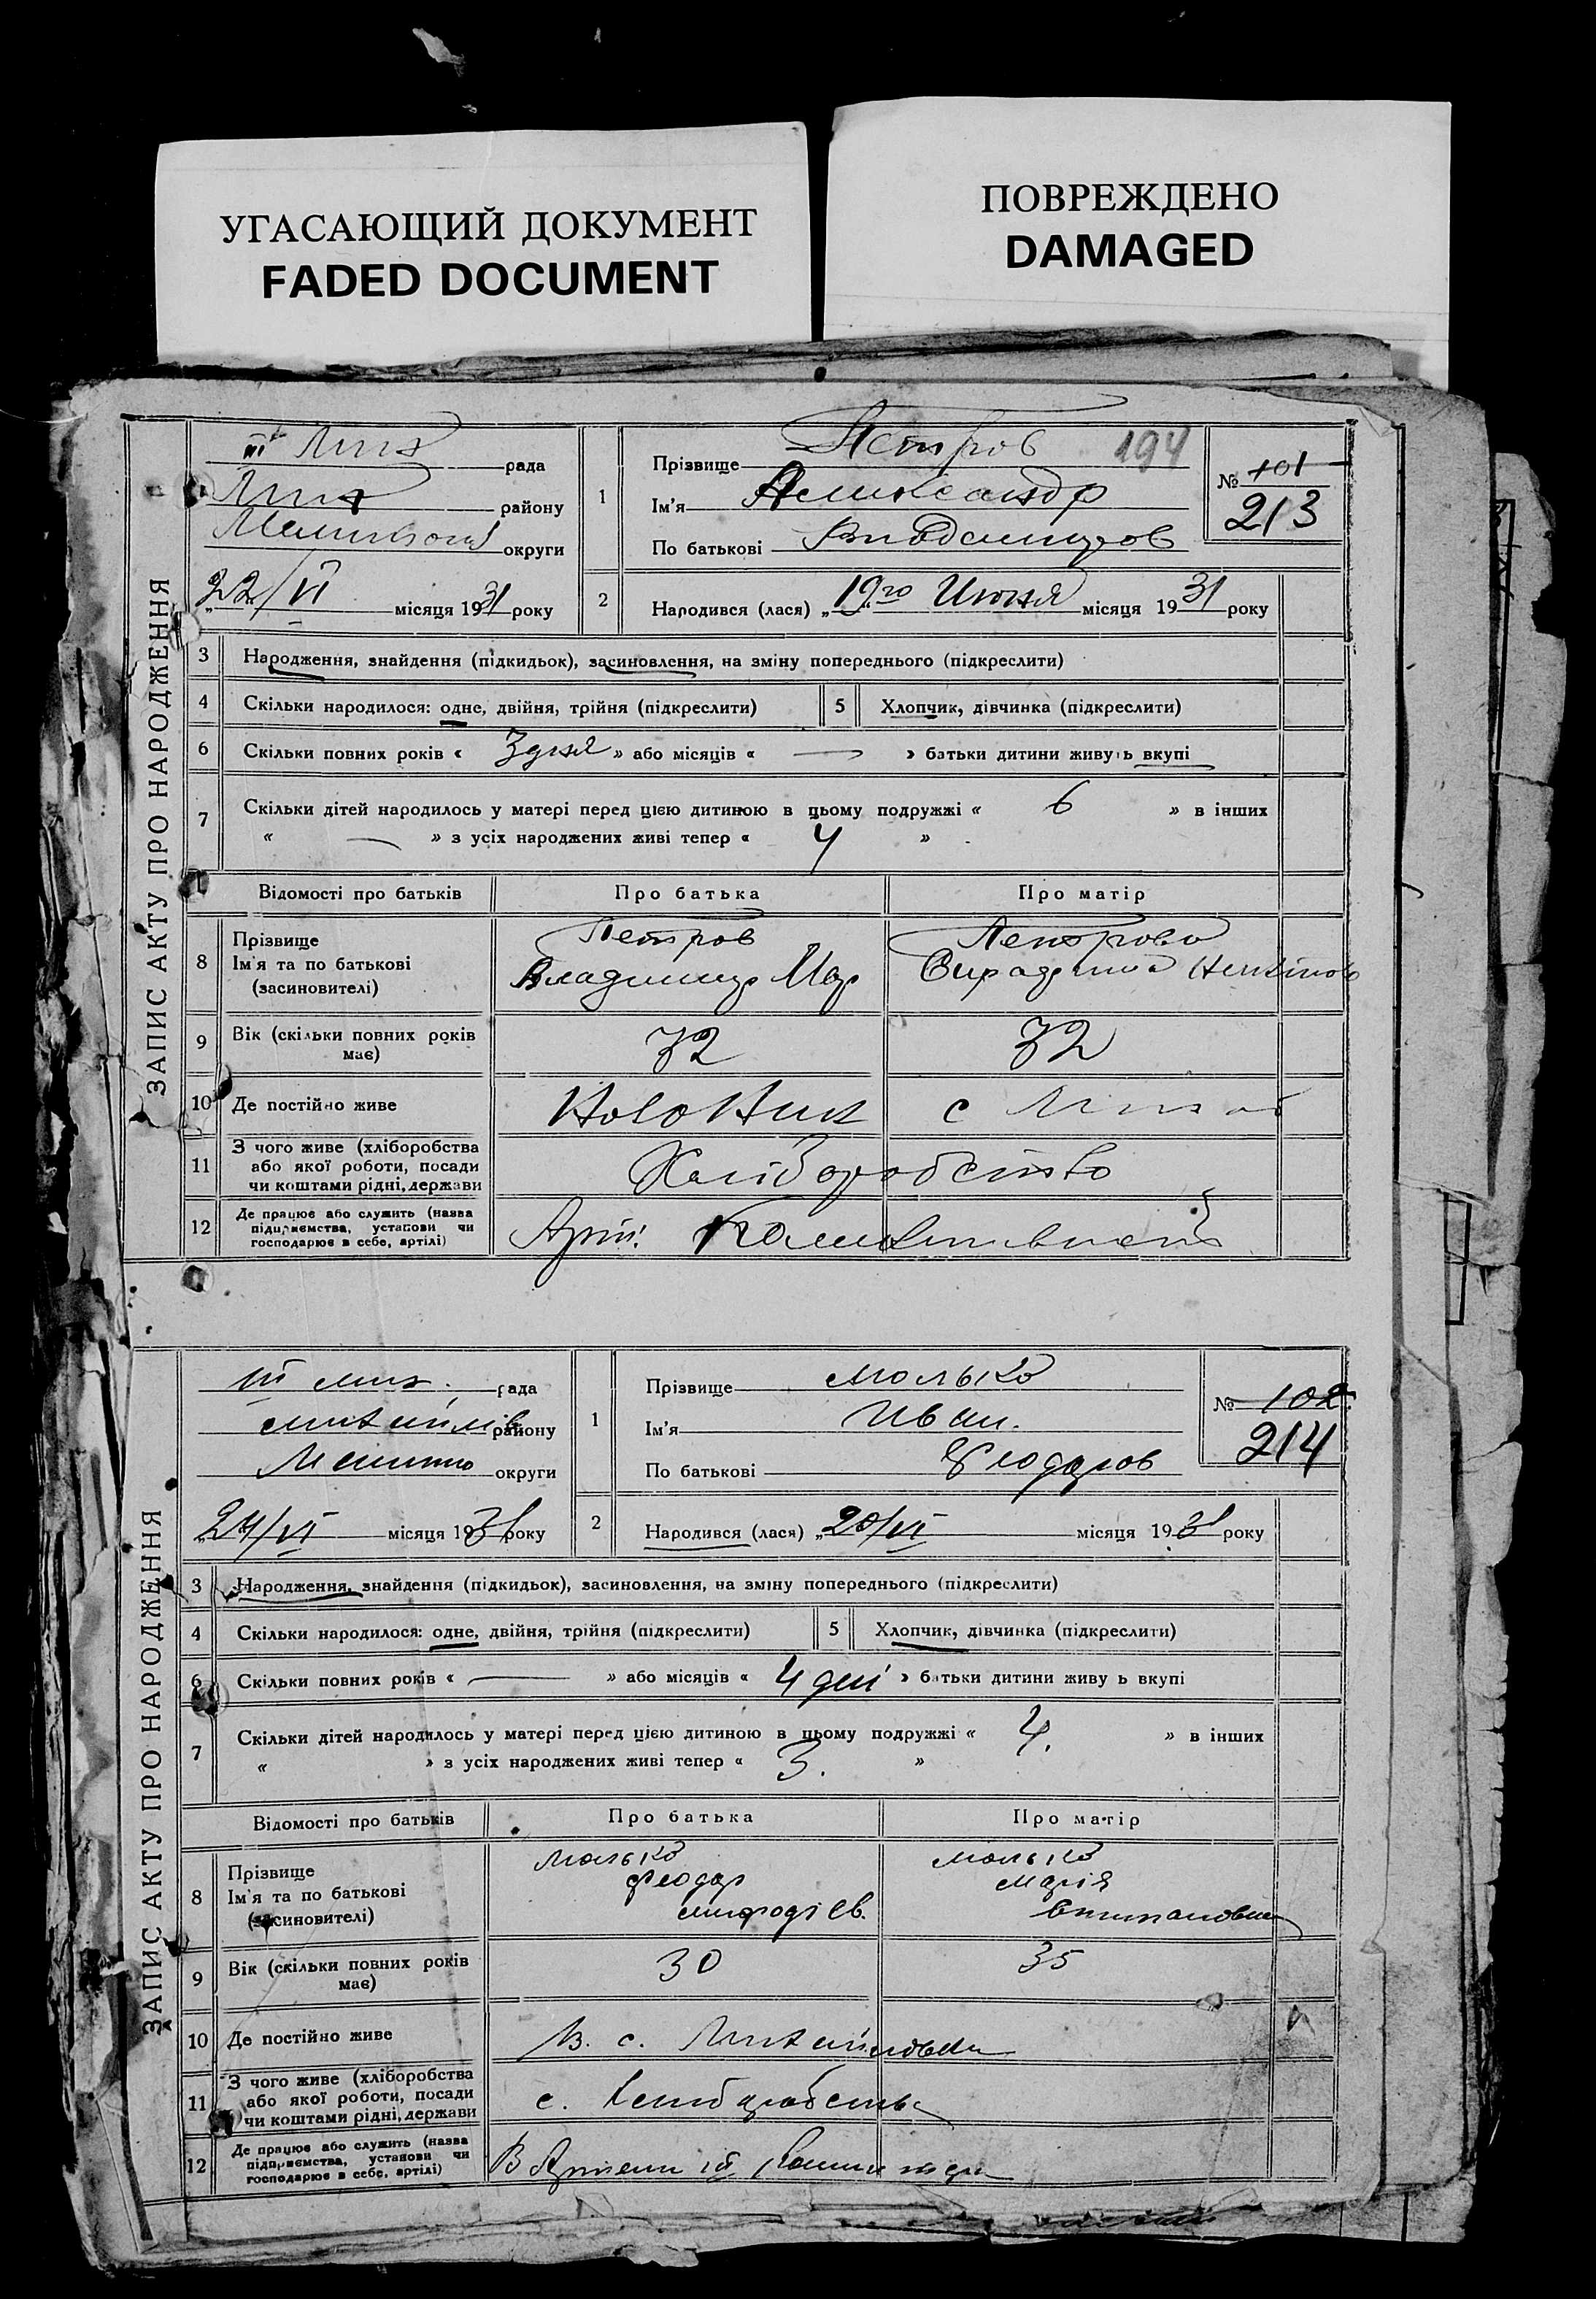 УГАСАЮЩИЙ ДОКУМЕНТ
FADED DOCUMENT
ПОВРЕЖДЕНО
DAMAGED
ЗАПИС АКТУ ПРО НАРОДЖЕННЯ
рада
району
округи
22/VI місяця 1931 року
1
Прізвище Петров 194
Ім'я Александр
По батькові
№ 101
213
2
Народився (лася) „19го Июня місяця 1931 року
3 Народження, знайдення (підкидьок), засиновлення, на зміну попереднього (підкреслити)
4 Скільки народилося: одне, двійня, трійня (підкреслити) 5 Хлопчик, дівчинка (підкреслити)
6 Скільки повних років « 3 дня » або місяців « — » батьки дитини живуть вкупі
7 Скільки дітей народилось у матері перед цією дитиною в цьому подружжі « 6 » в інших
« — » з усіх народжених живі тепер « 4 »
Відомості про батьків Про батька Про матір
8 Прізвище
Ім'я та по батькові
(засиновителі)
Петров
Владимир Мар
Петрова
9 Вік (скільки повних років має) 32 32
10 Де постійно живе с
11 З чого живе (хліборобства
або якої роботи, посади
чи коштами рідні, держави
Хліборобство
12 Де працює або служить (назва
підприємства, установи чи
господарює в себе, артілі)
Арт.
ЗАПИС АКТУ ПРО НАРОДЖЕННЯ
III мих. рада
михайлів району
округи
24/VI місяця 1931 року
1
Прізвище Молько
Ім'я Иван.
По батькові Феодоров
№ 102
214
2
Народився (лася) „20/VI місяця 1931 року
3 Народження, знайдення (підкидьок), засиновлення, на зміну попереднього (підкреслити)
4 Скільки народилося: одне, двійня, трійня (підкреслити) 5 Хлопчик, дівчинка (підкреслити)
6 Скільки повних років « — » або місяців « 4 дні » батьки дитини живу ь вкупі
7 Скільки дітей народилось у матері перед цією дитиною в цьому подружжі « 4. » в інших
« » з усіх народжених живі тепер « 3. »
Відомості про батьків Про батька Про матір
8 Прізвище
Ім'я та по батькові
(засиновителі)
Молько
Феодор
Молько
Марія
9 Вік (скільки повних років має) 30 35
10 Де постійно живе В. с. Михайловка
11 З чого живе (хліборобства
або якої роботи, посади
чи коштами рідні, держави
с.
12 Де працює або служить (назва
підприємства, установи чи
господарює в себе, артілі)
В Артели